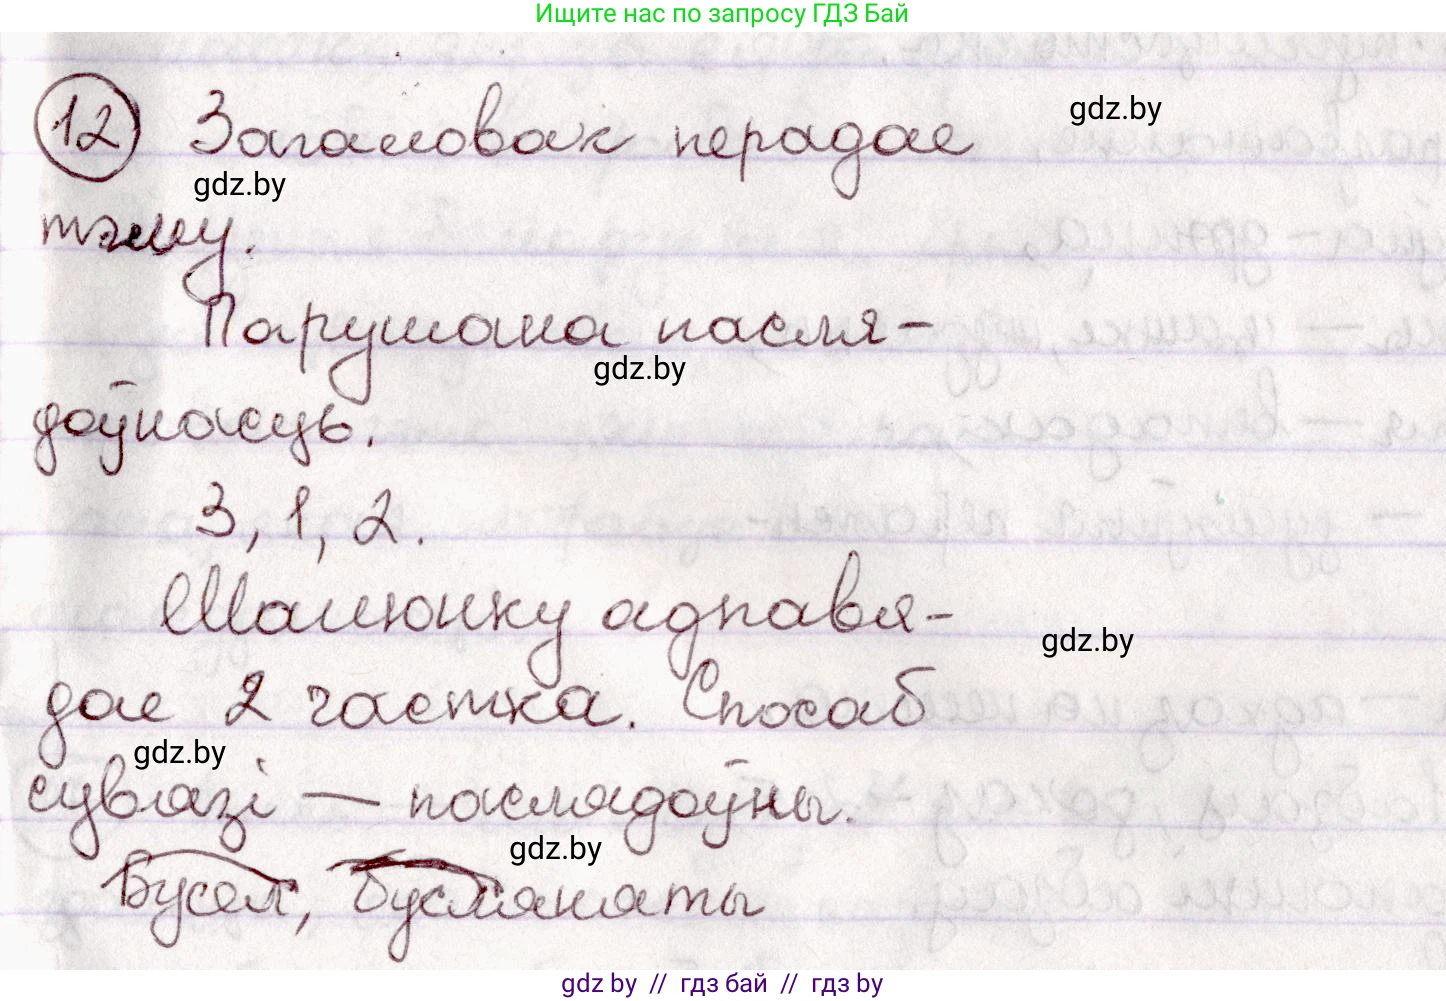 Ищите нас по запросу ГДЗ Бай
12 Загаловак перадае
gdz.by
gdz.by
тэму.
Парушана пасля-
gdz.by
доўнасць.
3, 1, 2.
Малюнку адпавя-
gdz.by
дае 2 частка. Спосаб
gdz.by
сувязі — паслядоўны.
gdz.by
Бусел, бусляняты
gdz by // гдз бай // гдз by